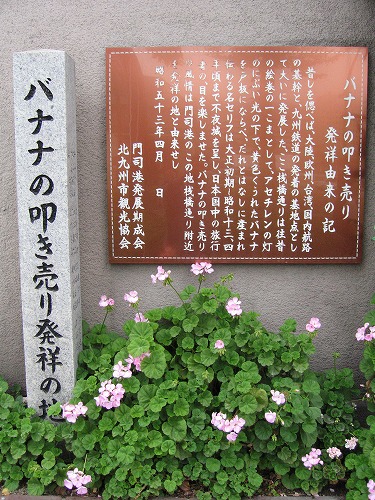 バナナの叩き売り発祥の地
バナナの叩き売り
発祥由来の記
昔しを偲べば、大陸、欧州、台湾、国内航路
の基幹と、九州鉄道の発着の基地点とし
て大いに発展した、ここ桟橋通りは往昔
の絵巻の一こまとして、アセチレンの灯
のにぶい光の下で、黄色くうれたバナナ
を戸板にならべ、だれとはなしに産まれ
伝わる名セリフは大正初期~昭和十三・四
年頃まで不夜城を呈し、日本国中の旅行
者の、目を楽しませた。バナナの叩き売り
の風情は門司港のこの地桟橋通り附近
発祥の地と由来せし
昭和五十三年四月 日
門司港発展期成会
北九州市観光協会